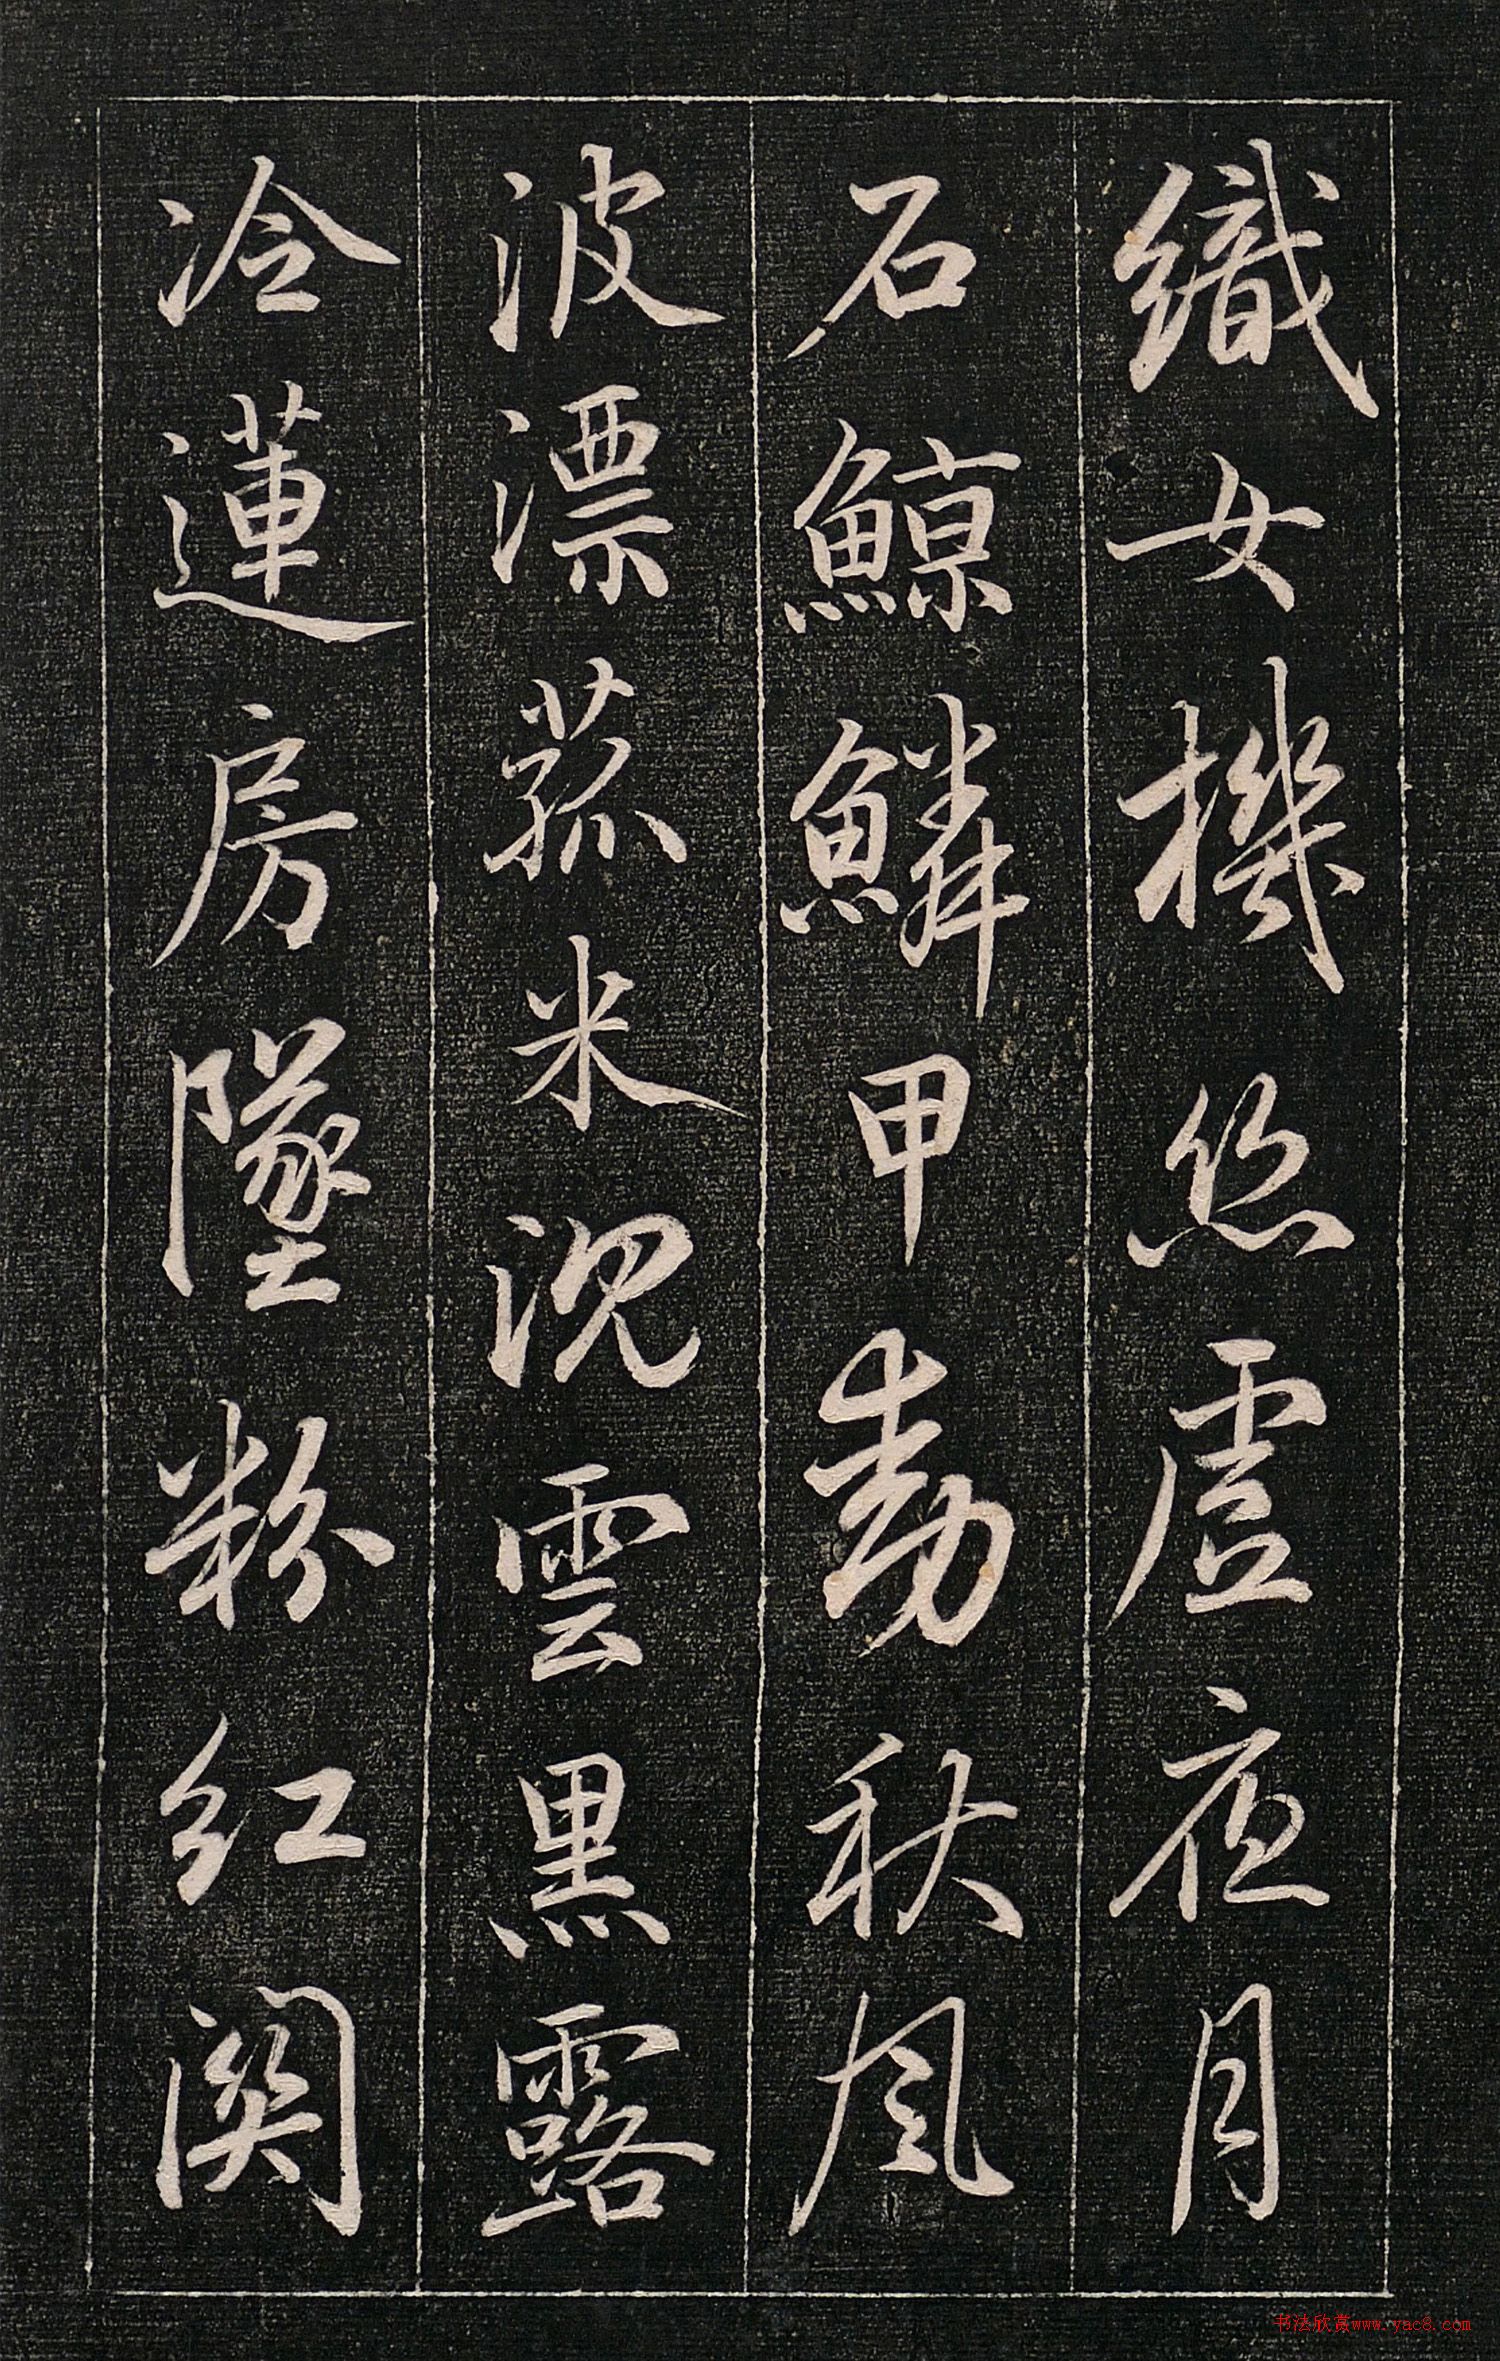 織女機絲虛夜月
石鯨鱗甲動秋風
波漂菰米沉雲黑露
冷蓮房墜粉紅関
书法欣赏www.yac8.com